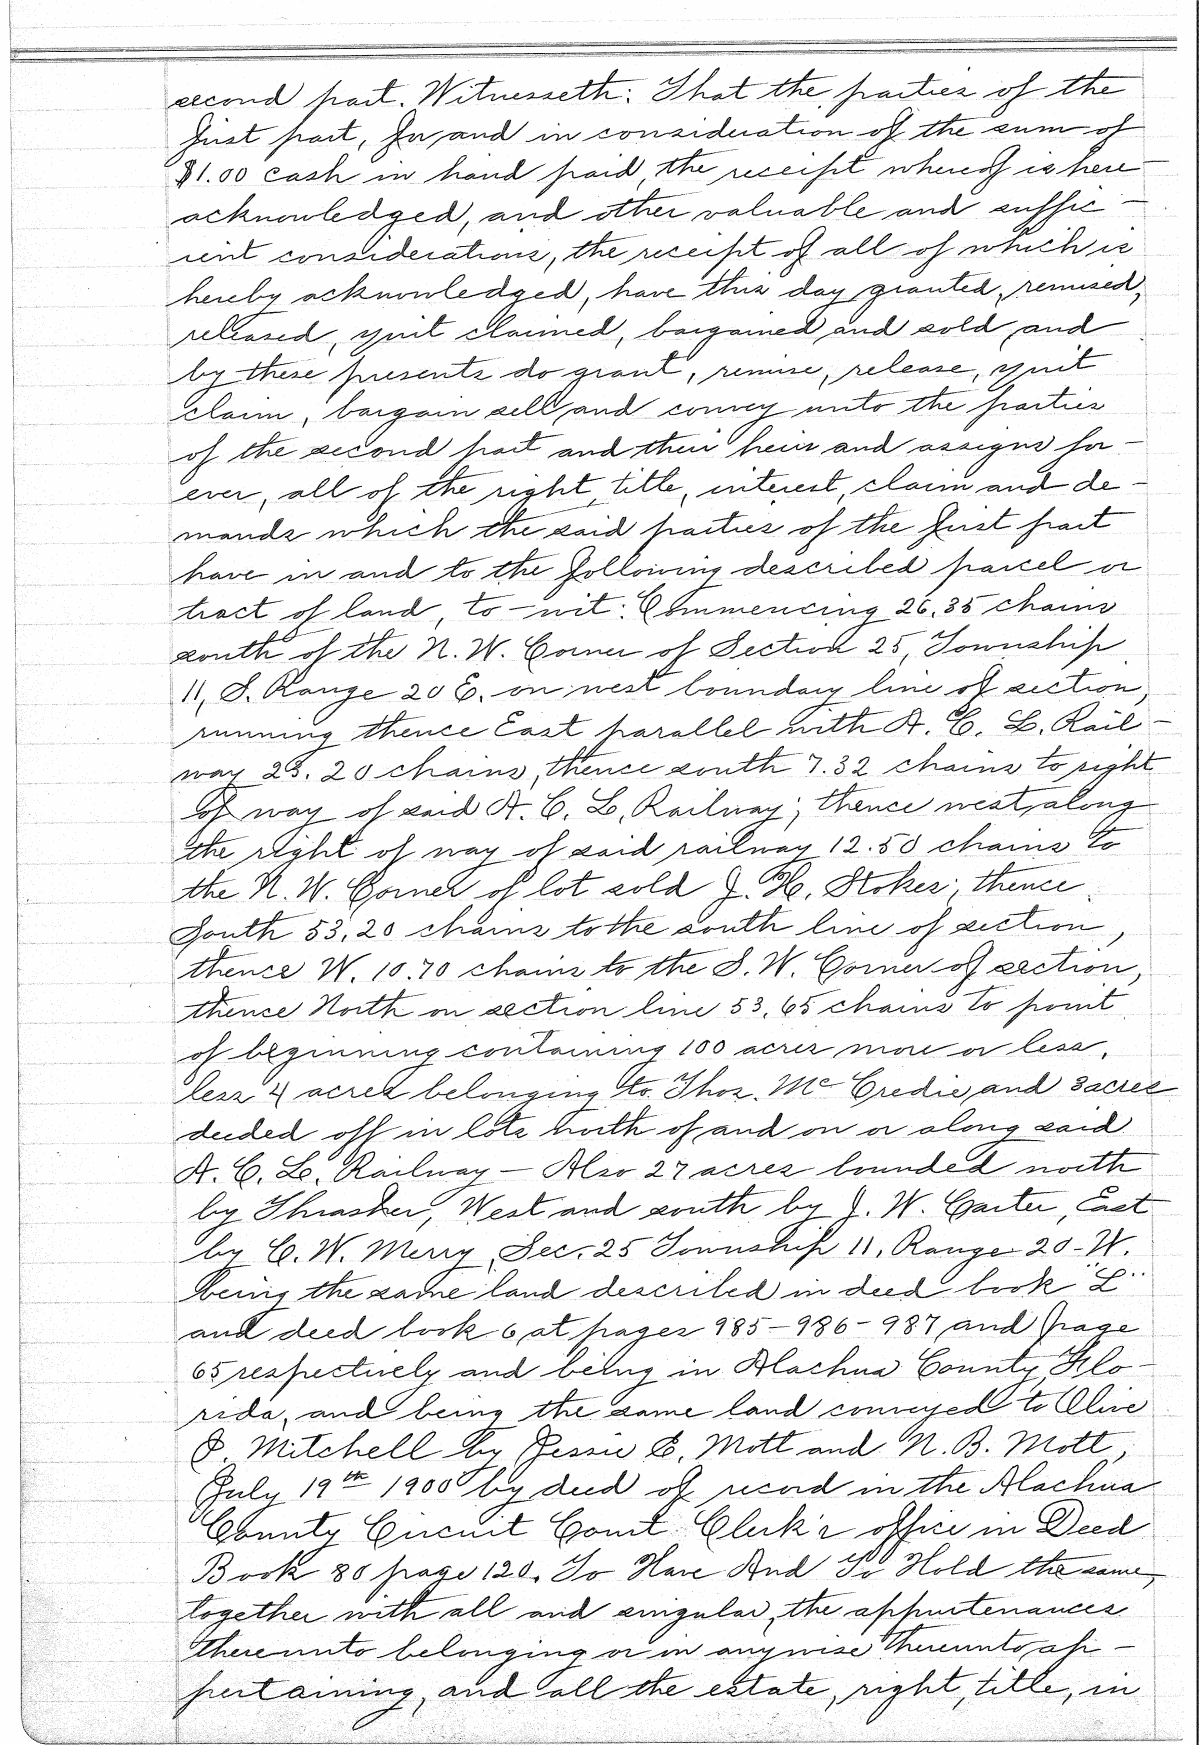 second part. Witnesseth: That the parties of the
first part, for and in consideration of the sum of
$1.00 cash in hand paid, the receipt whereof is here
acknowledged, and other valuable and suffic-
ient considerations, the receipt of all of which is
hereby acknowledged, have this day granted, remised,
released, quit claimed, bargained and sold, and
by these presents do grant, remise, release, quit
claim, bargain sell and convey unto the parties
of the second part and their heirs and assigns for-
ever, all of the right, title, interest, claim and de-
mands which the said parties of the first part
have in and to the following described parcel or
tract of land, to-wit: Commencing 26.35 chains
south of the N. W. Corner of Section 25, Township
11, S. Range 20 E. on west boundary line of section,
running thence East parallel with A. C. L. Rail-
way 23.20 chains, thence south 7.32 chains to right
of way of said A. C. L. Railway; thence west, along
the right of way of said railway 12.50 chains to
the N. W. Corner of lot sold J. H. Stokes; thence
South 53.20 chains to the south line of section,
thence W. 10.70 chains to the S. W. Corner of section,
thence North on section line 53.65 chains to point
of beginning containing 100 acres more or less,
less 4 acres belonging to Thos. McCredie, and 3 acres
deeded off in lots north of and on or along said
A. C. L. Railway - Also 27 acres bounded north
by Thrasher, West and south by J. W. Carter, East
by C. W. Merry, Sec. 25 Township 11, Range 20-W.
being the same land described in deed book "L"
and deed book 6, at pages 985-986-987 and page
65 respectively and being in Alachua County, Flo-
rida, and being the same land conveyed to Olive
J. Mitchell by Jessie E. Mott and N. B. Mott,
July 19th 1900 by deed of record in the Alachua
County Circuit Court Clerk's office in Deed
Book 80 page 120. To Have And To Hold the same,
together with all and singular, the appurtenances
thereunto belonging or in anywise thereunto ap-
pertaining, and all the estate, right, title, in